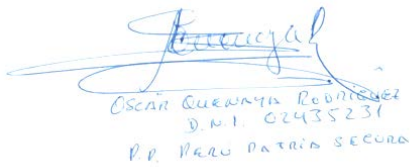 OSCAR QUENAYA RODRIGUEZ
D.N.I. 02435231
P.P. PERU PATRIA SEGURA